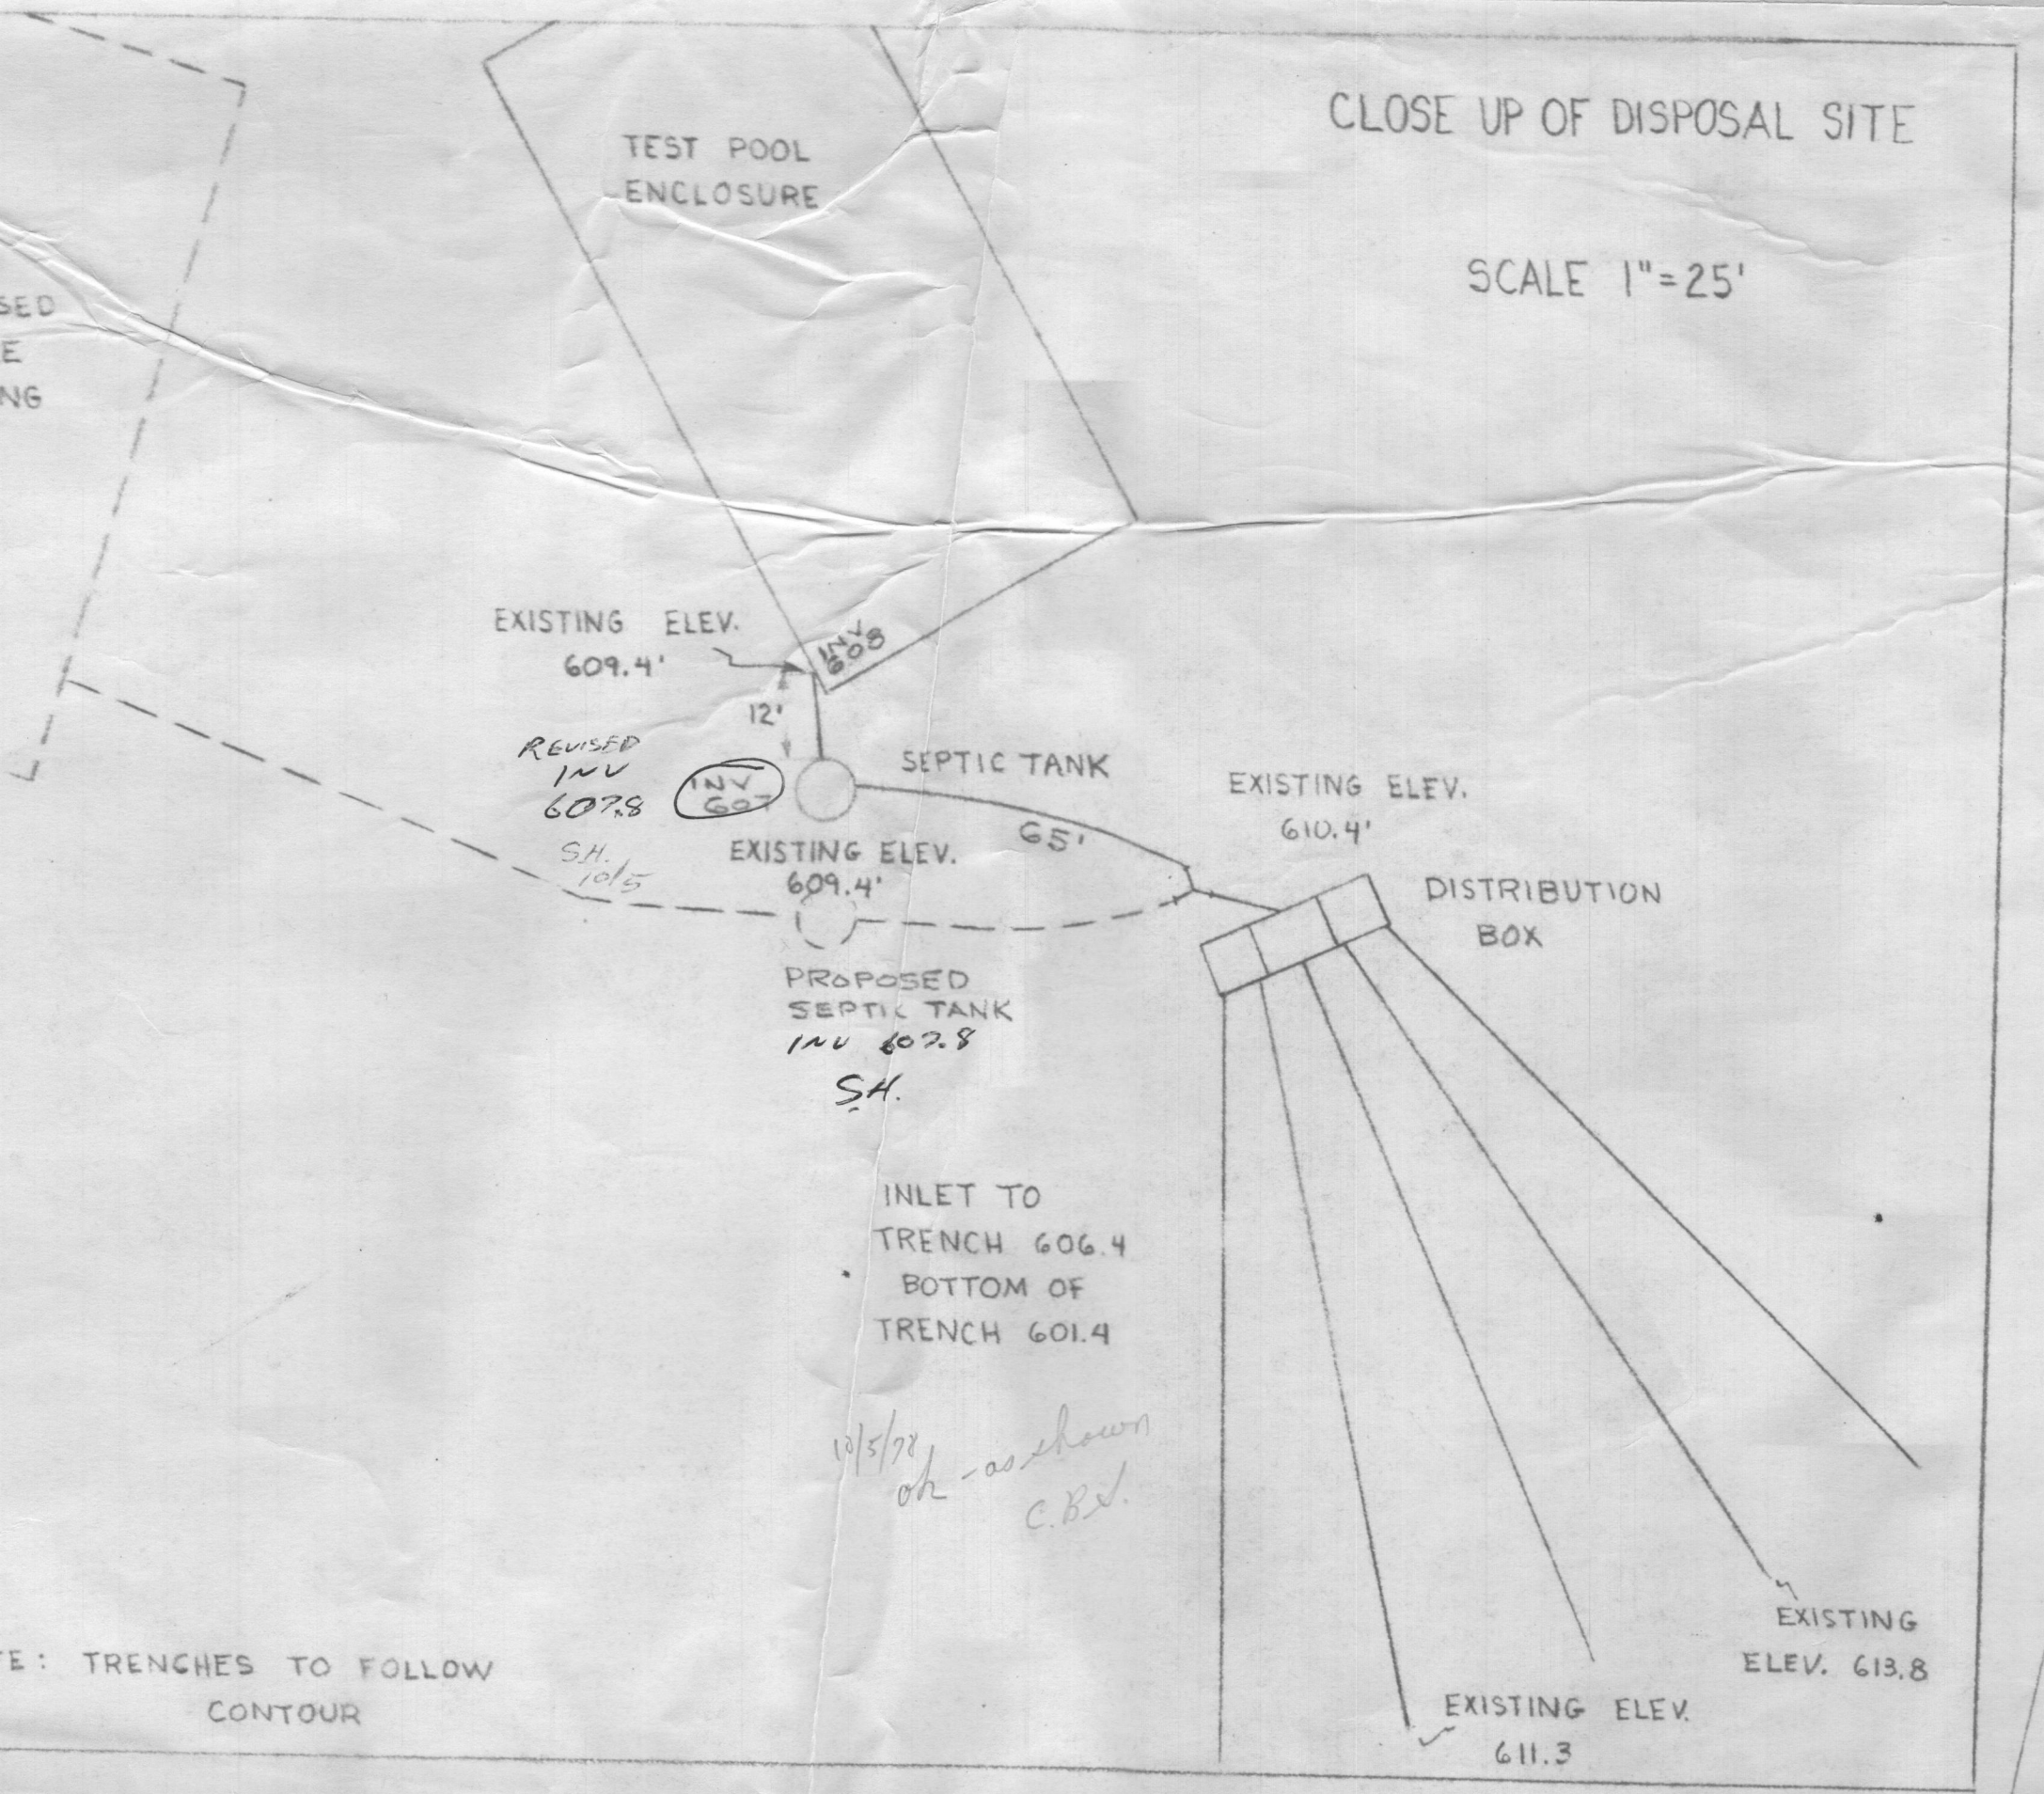 CLOSE UP OF DISPOSAL SITE
SCALE 1"=25'
TEST POOL
ENCLOSURE
SED
E
NG
EXISTING ELEV.
609.4'
INV
608
12'
REVISED
INV
607.8
S.H.
10/5
INV
607
SEPTIC TANK
65'
EXISTING ELEV.
609.4'
EXISTING ELEV.
610.4'
DISTRIBUTION
BOX
PROPOSED
SEPTIC TANK
INV 607.8
S.H.
INLET TO
TRENCH 606.4
BOTTOM OF
TRENCH 601.4
10/5/78
ok - as shown
C.B.S.
EXISTING
ELEV. 613.8
EXISTING ELEV.
611.3
TE: TRENCHES TO FOLLOW
CONTOUR